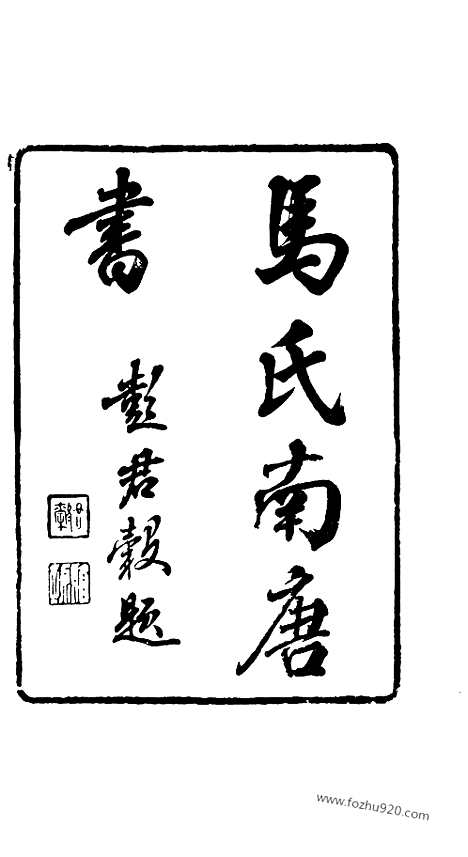 馬氏南唐
書
彭君穀題
君穀
www.fozhu920.com